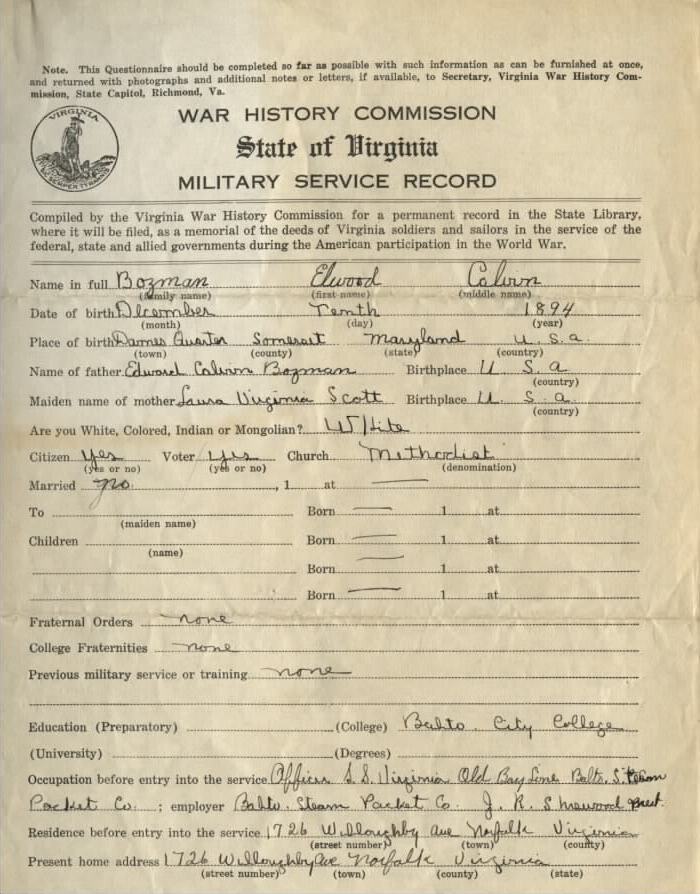 Note. This Questionnaire should be completed so far as possible with such information as can be furnished at once,
and returned with photographs and additional notes or letters, if available, to Secretary, Virginia War History Com-
mission, State Capitol, Richmond, Va.
VIRGINIA
WAR HISTORY COMMISSION
State of Virginia
MILITARY SERVICE RECORD
Compiled by the Virginia War History Commission for a permanent record in the State Library,
where it will be filed, as a memorial of the deeds of Virginia soldiers and sailors in the service of the
federal, state and allied governments during the American participation in the World War.
Name in full Bozman Elwood Calvin
(family name) (first name) (middle name)
Date of birth December Tenth 1894
(month) (day) (year)
Place of birth Dames Quarter Somerset Maryland U. S. a.
(town) (county) (state) (country)
Name of father Edward Calvin Bozman Birthplace U. S. a
(country)
Maiden name of mother Laura Virginia Scott Birthplace U. S. a.
(country)
Are you White, Colored, Indian or Mongolian? White
Citizen yes Voter yes Church Methodist
(yes or no) (yes or no) (denomination)
Married no , 1 at
To Born 1 at
(maiden name)
Children Born 1 at
(name)
Born 1 at
Born 1 at
Fraternal Orders none
College Fraternities none
Previous military service or training none
Education (Preparatory) (College) Balto. City College
(University) (Degrees)
Occupation before entry into the service Officer S.S. Virginia Old Bay Line Balto. Steam
Packet Co. ; employer Balto. Steam Packet Co. J. R. Sherwood Prest.
Residence before entry into the service 1726 Willoughby Ave Norfolk Virginia
(street number) (town) (county)
Present home address 1726 Willoughby Ave Norfolk Virginia
(street number) (town) (county) (state)